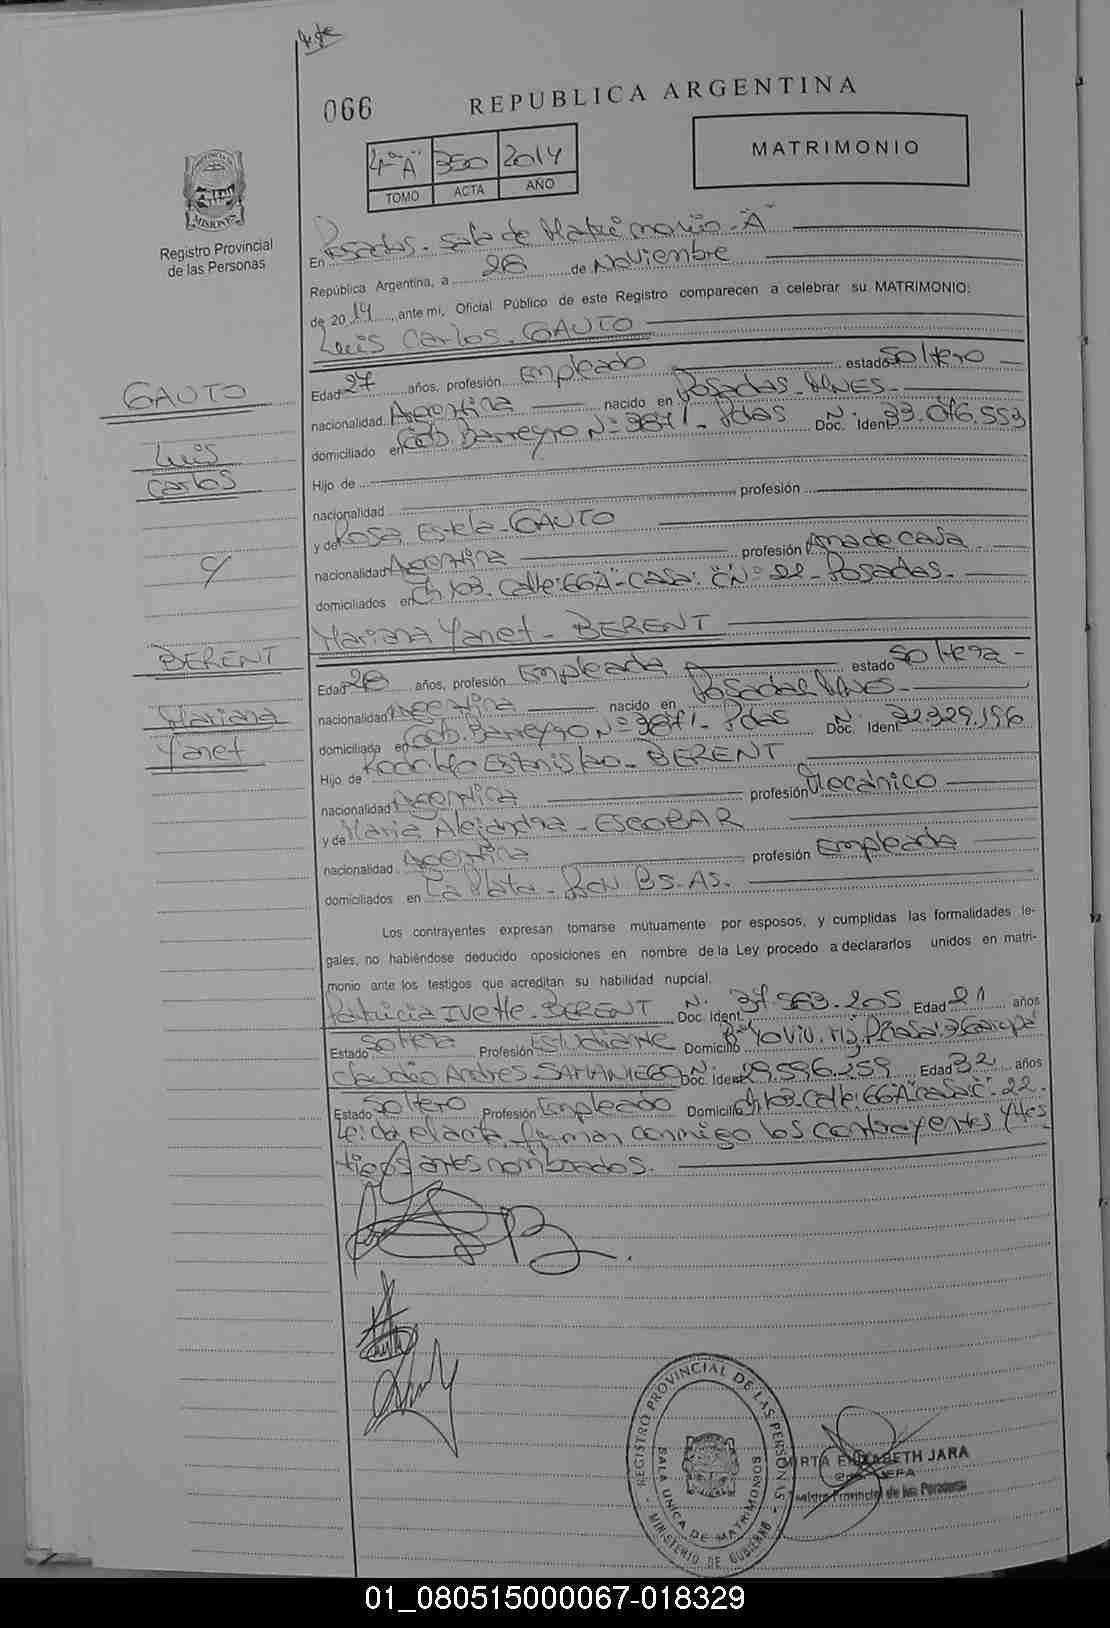 066
REPUBLICA ARGENTINA
4º "A" 350 2014
TOMO ACTA AÑO
MATRIMONIO
MISIONES
Registro Provincial
de las Personas
En Posadas - Sala de Matrimonio - "A"
República Argentina, a 28 de Noviembre
de 2014, ante mi, Oficial Público de este Registro comparecen a celebrar su MATRIMONIO:
Luis Carlos GAUTO
Edad 27 años, profesión Empleado estado Soltero
nacionalidad Argentina nacido en Posadas, MNES.
domiciliado en Barreyro Nº 3871 - Pdas Doc. Ident. Nº 33.076.553
Hijo de
nacionalidad profesión
y de Rosa Estela GAUTO
nacionalidad Argentina profesión Ama de casa
domiciliados en Ch 103. Calle: 66"A" - Casa: "C" Nº 22 - Posadas.
Mariana Yanet - BERENT
Edad 28 años, profesión Empleada estado Soltera -
nacionalidad Argentina nacido en Posadas MNES.
domiciliada en Barreyro Nº 3871 - Pdas Doc. Ident. Nº 32.329.196
Hijo de Rodolfo Estanislao - BERENT
nacionalidad Argentina profesión Mecánico
y de Maria Alejandra - ESCOBAR
nacionalidad Argentina profesión Empleada
domiciliados en La Plata - Bs. As.
Los contrayentes expresan tomarse mutuamente por esposos, y cumplidas las formalidades le-
gales, no habiéndose deducido oposiciones en nombre de la Ley procedo a declararlos unidos en matri-
monio ante los testigos que acreditan su habilidad nupcial.
Patricia Ivette - BERENT Doc. Ident. Nº 37.583.205 Edad 21 años
Estado Soltera Profesión Estudiante Domicilio
Claudio Andres SAMANIEGO Doc. Ident. Nº 29.596.259 Edad 32 años
Estado Soltero Profesión Empleado Domicilio Ch 103. Calle: 66"A" casa "C" 22.
Leida el acta, firman conmigo los contrayentes y tes
tigos antes nombrados.
GAUTO
Luis
Carlos
c/
BERENT
Mariana
Yanet
REGISTRO PROVINCIAL DE LAS PERSONAS
SALA UNICA DE MATRIMONIOS
MINISTERIO DE GOBIERNO
MIRTA ELIZABETH JARA
JEFA
Registro Provincial de las Personas
01_080515000067-018329